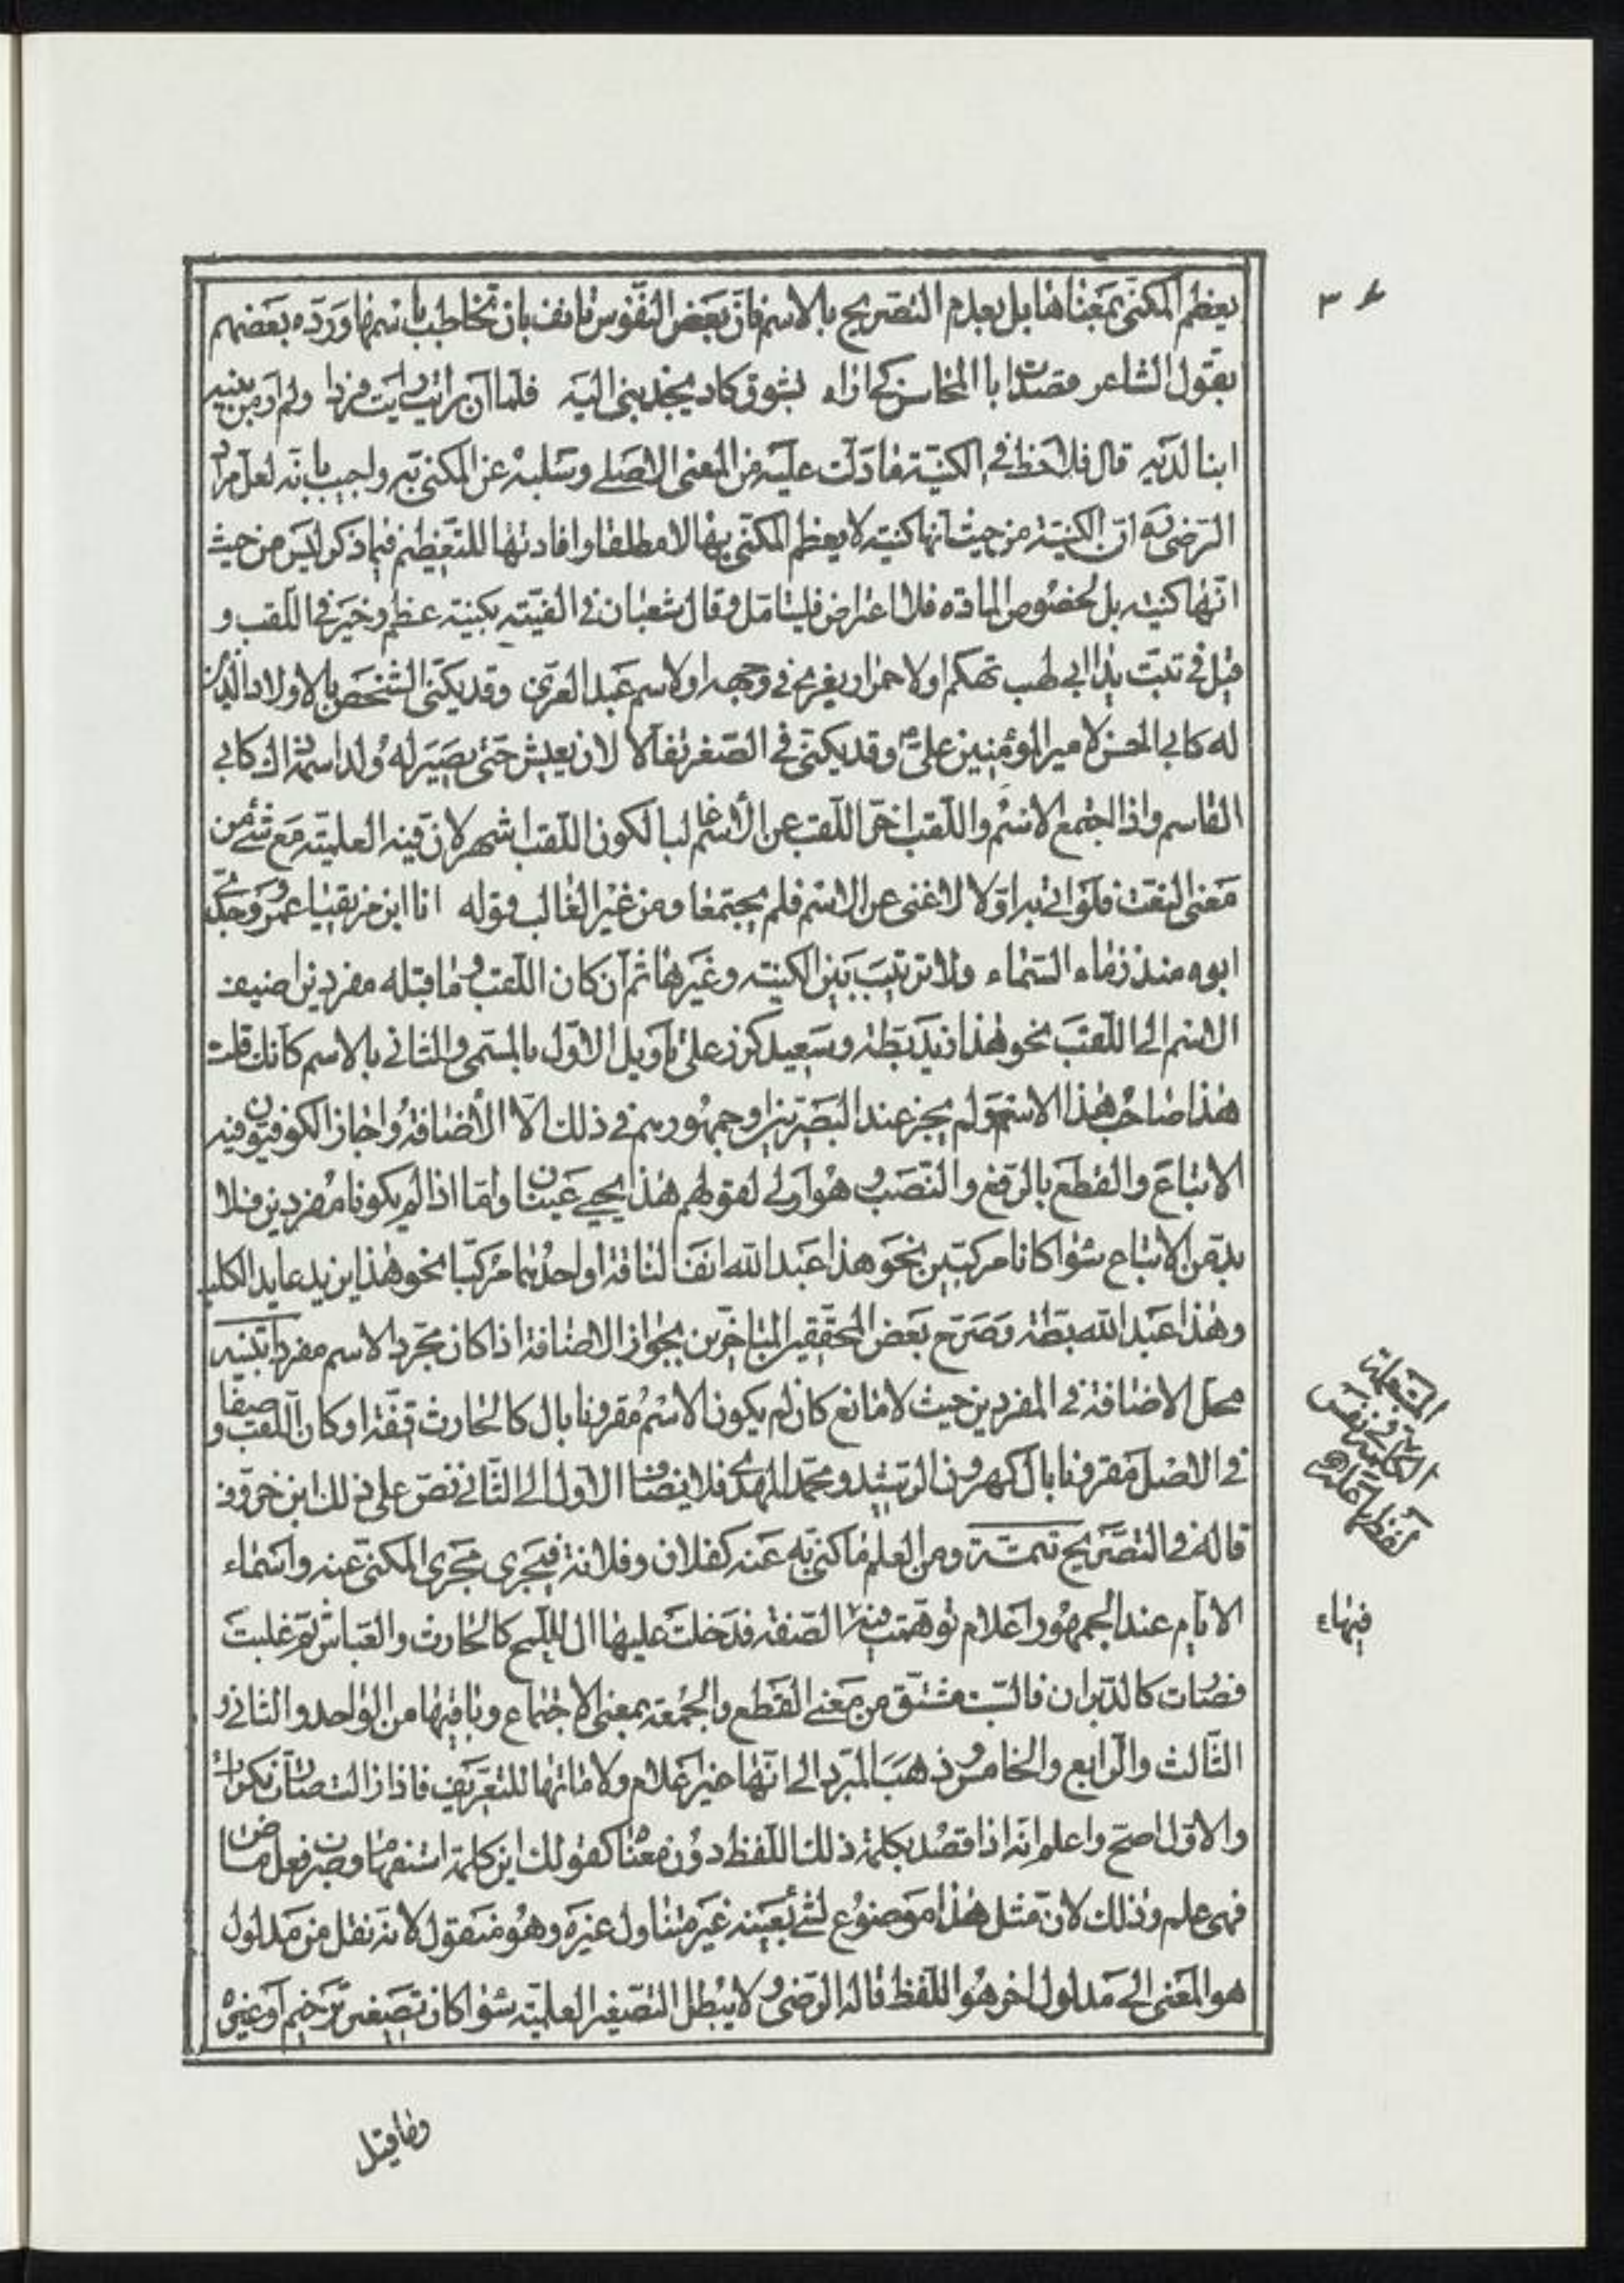 يعظم المكنّى بمعناها بل بعدم التصريح بالاسم فانّ بعض النفوس تانف بان تخاطب باسمها وردّه بعضهم
بقول الشاعر قصدت ابا المحاسن كے اراه بشوق كاد يجذبنى اليه فلمّا ان رايت رايت فردا ولم ار من بنيه
ابنا لديه قال فلاحظ فى الكنية ما دلّت عليه من المعنى الاصلے وسلبه عن المكنى به واجيب بانّه لعلّ مراد
الرضى ره انّ الكنية من حيث انّها كنيته لا يعظم المكنّى بها لا مطلقا وافادتها للتعظيم فيما ذكر ليس من حيث
انّها كنيته بل لخصوص المادّه فلا اعتراض فليتامّل وقال شعبان فى الفيّته بكنيته عظم وخير فى اللقب و
قيل فى تبّت يدا ابى لهب تهكم او لاحمرار يغرى فى وجهه او لاسم عبد العزى وقد يكنّى الشخص بالاولاد الّذين
له كابى الحسن لامير المؤمنين علىّ ع وقد يكنّى فى الصّغر تفألا لان يعيش حتى يصير له ولد اسمه ذاك كابى
القاسم واذا اجتمع الاسم واللقب اخّر اللقب عن الاسم غالبا لكون اللقب اشهر لانّ فيه العلميّة مع شئ من
معنى النعت فلو اتى به اوّلا لاغنى عن الاسم فلم يجتمعا ومن غير الغالب قوله انا ابن مزيقيا عمرو وجدّى
ابوه منذر ماء السّماء ولا ترتيب بين الكنيته وغيرها ثم ان كان اللقب وما قبله مفردين اضيف
الاسم الى اللقب نحو هذا زيد بطّة وسعيد كرز على تاويل الاوّل بالمسمى والثانى بالاسم كانك قلت
هذا صاحب هذا الاسم ولم يجز عند البصريّين وجمهورهم فى ذلك الّا الأضافة واجاز الكوفيّون فيه
الاتباع والقطع بالرّفع والنّصب وهو اولى لقولهم هذا يحيے عينان وامّا اذا لم يكونا مفردين فلا
بدّ من الاتباع سواء كانا مركبّين نحو هذا عبد الله انف الناقة او احدهما مركبّا نحو هذا يزيد عايد الكلب
وهذا عبد الله بطة وصرّح بعض المحققين المتاخّرين بجواز الاضافة اذا كان مجرّد الاسم مفردا تنبيه
محل الاضافة فى المفردين حيث لا مانع كان لم يكون الاسم مقرونا بال كالحارث قفّة او كان اللقب وصفا
فى الاصل مقرونا بال كهرون الرّشيد ومحمّد المهدى فلا يضاف الاول الى الثّانى نصّ على ذلك ابن خروف
قاله فى التصريح تتمّة ومن العلم ما كنى به عنه كفلان وفلانة فيجرى مجرى المكنى عنه واسماء
الايّام عند الجمهور اعلام توهّمت فيها الصّفة فدخلت عليها ال للمح كالحارث والعبّاس ثم غلبت
فصارت كالدّبران فالسّبت مشتق من معنى القطع والجمعة بمعنى الاجتماع وباقيها من الواحد والثانى و
الثّالث والرّابع والخامس وذهب المبرّد الى انّها غير اعلام ولاماتها للتعريف فاذا زالت صارت نكرات
والاوّل اصحّ واعلم انّه اذا قصد بكلمة ذلك اللّفظ دون معناه كقولك اين كلمة استفهام وضرب فعل ماض
فهى علم وذلك لانّ مثل هذا موضوع لشئ بعينه غير متناول غيره وهو منقول لانّه نقل من مدلول
هو المعنى الى مدلول اخر هو اللفظ قاله الرّضى ولا يبطل التصغير العلميّة سواء كان تصغير ترخيم او غيره
فيهاء
وما قيل